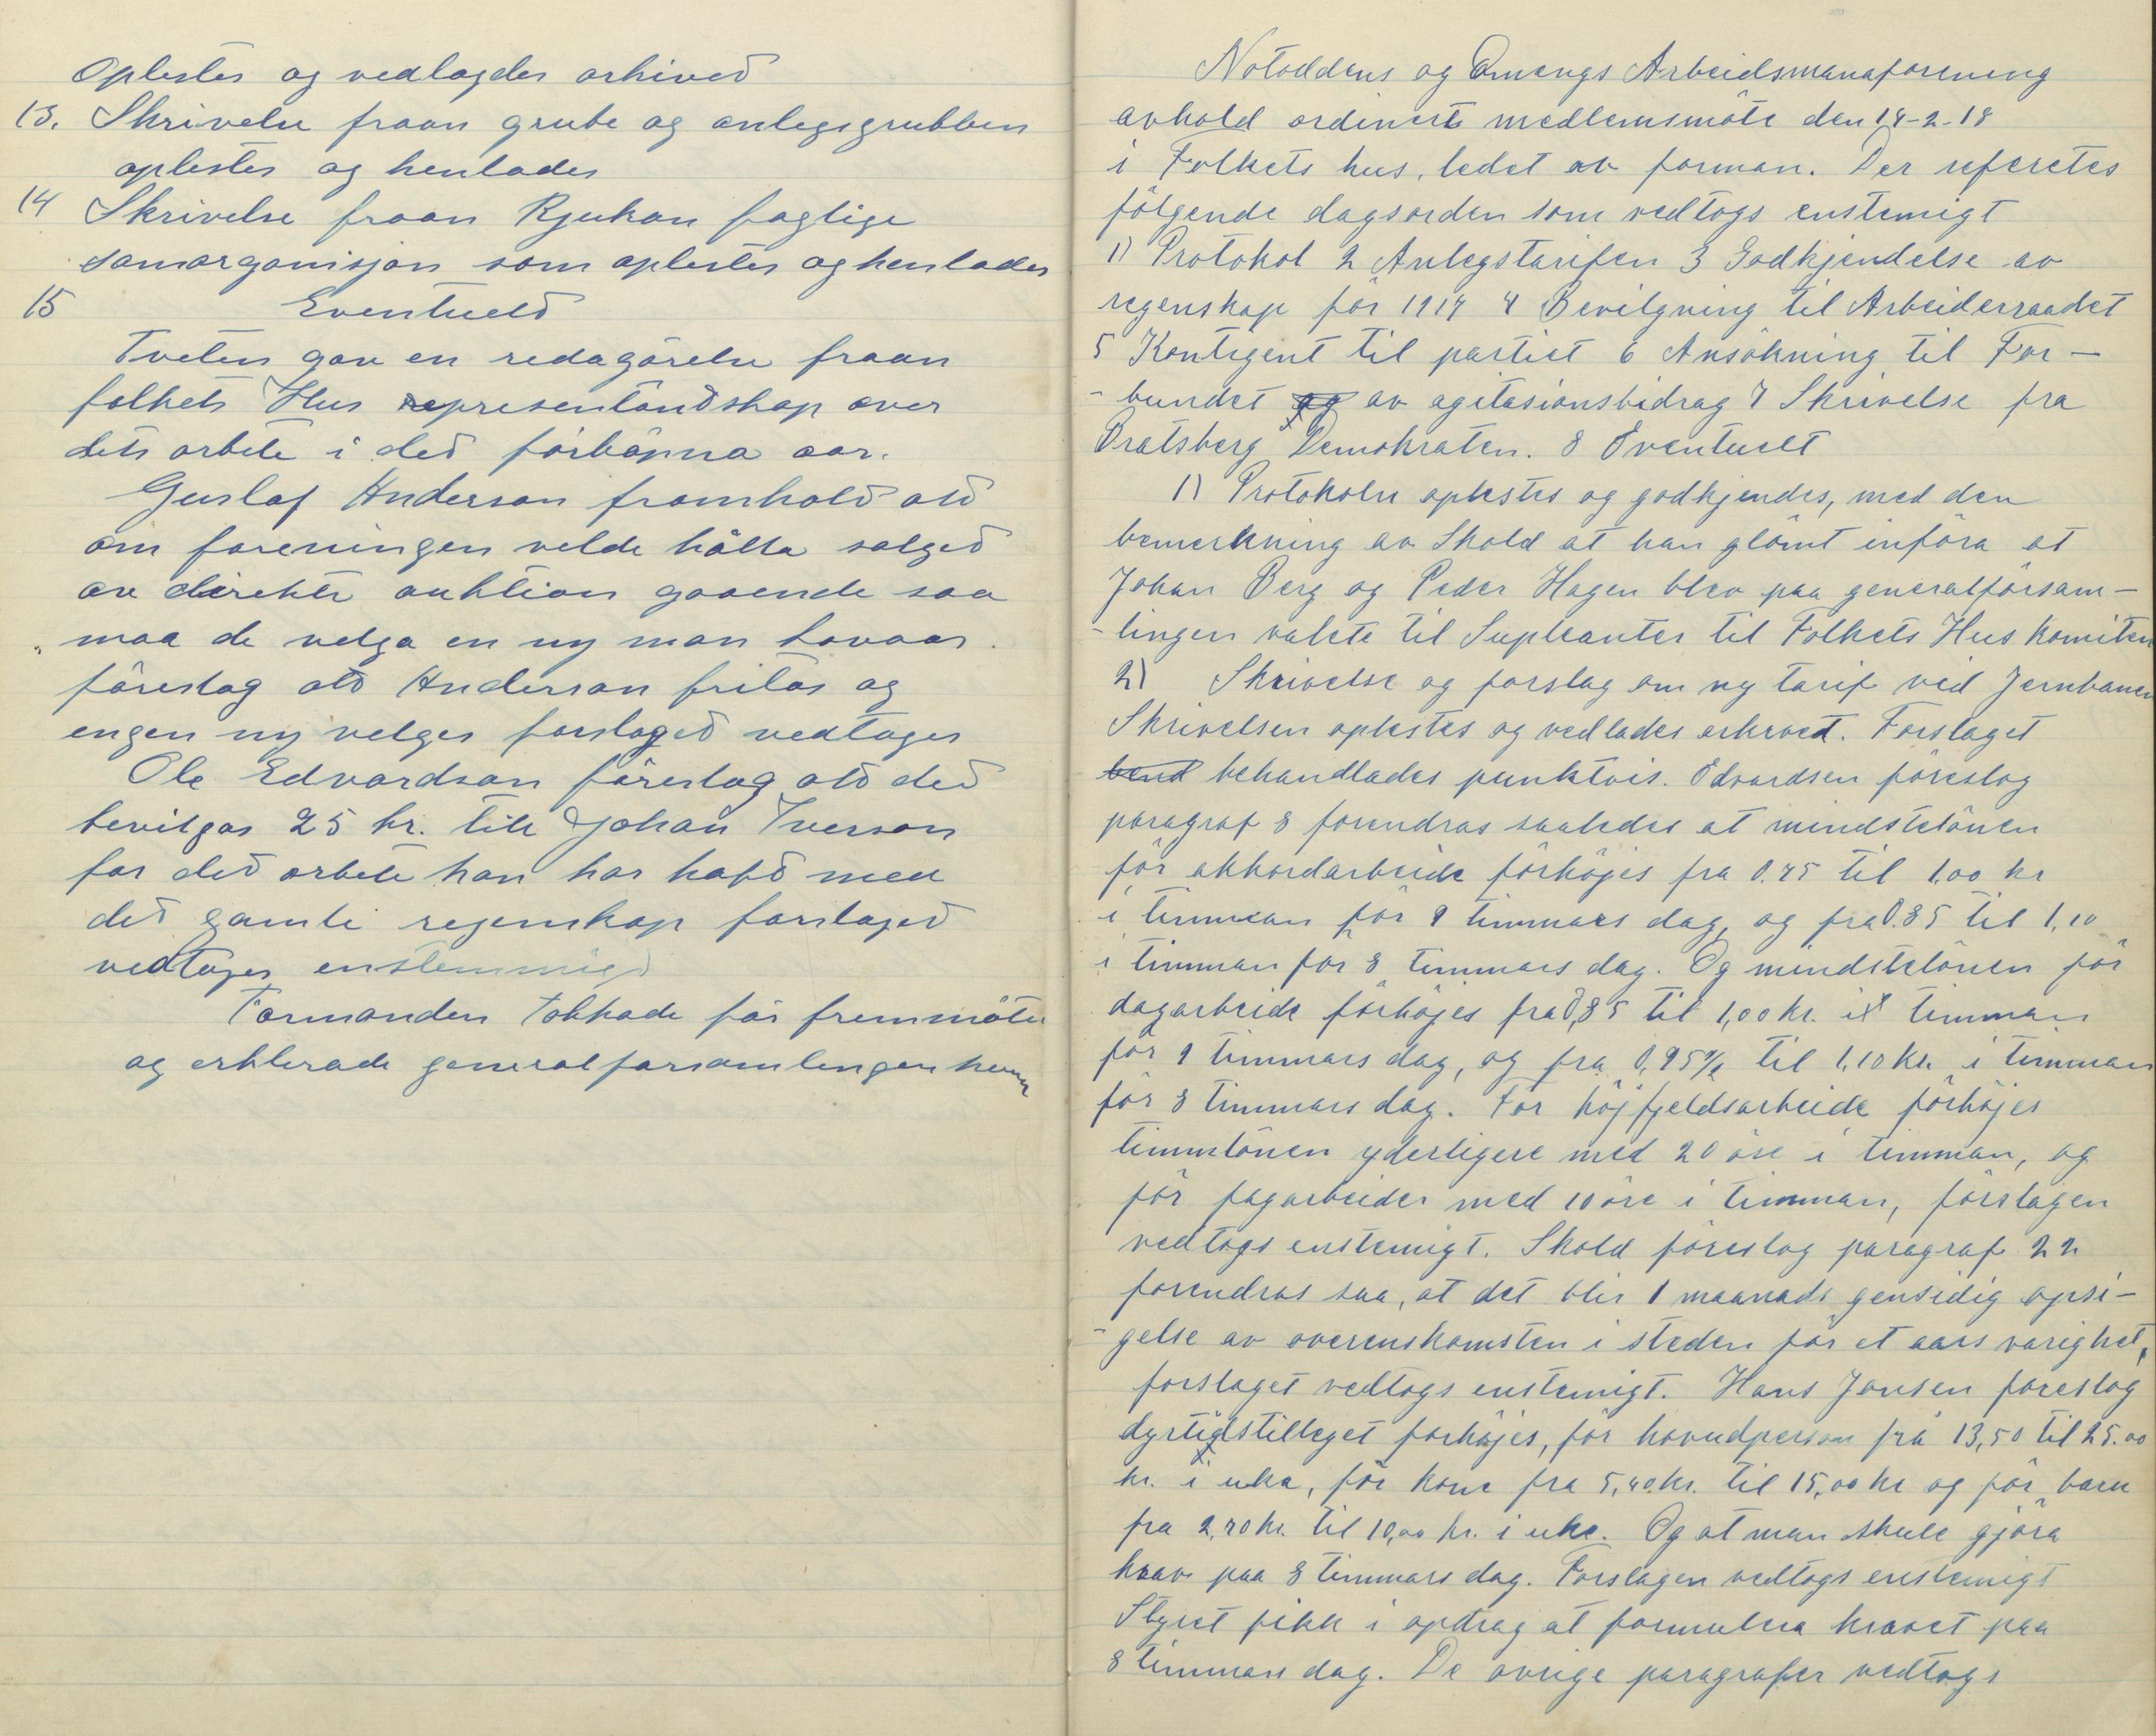 oplestes og vedlagdes arkived
13. Skrivelse fraan grube og anlegsgrubben
oplestes og henlades
14 Skrivelse fraan Rjukan faglige
samorganisjon som oplestes og henlades
15 Eventueld
Tveten gav en redagörelse fraan
folkets Hus representandskap over
dets arbete i ded förböpna aar.
Gustaf Anderson framhold atd
om foreningen velde hålla salged
av direkte auktion gaaende saa
maa de velga en ny man tavaar.
föreslag atd Anderson fritas og
engen ny velges forslaged vedtages
Ole Edvardson föreslag atd ded
bevilgas 25 kr. till Johan Iverson
for ded arbete han har hafd med
det gamle regenskap forslaged
vedtages enstemmigd
Formanden takkade för fremmöte
og erklerade generalforsamlingen hevet
Notoddens og Omengs Arbeidsmanaforening
avhold ordinert medlemsmöte den 14-2-18
i Folkets hus, ledet av forman. Der referetes
fölgende dagsorden som vedtogs enstemigt
1) Protokol 2 Anlegstarifen 3 Godkjendelse av
regenskap för 1917 4 Bevilgning til Arbeiderraadet
5 Kontigent til partiet 6 Ansökning til For-
-bundet og av agitasionsbidrag 7 Skrivelse fra
Bratsberg Demokraten. 8 Eventuelt
1) Protokolen oplestes og godkjendes, med den
bemerkning av Skold at han glömt införa at
Johan Berg og Peder Hagen blev paa generalförsam-
-lingen valete til Supleanter til Folkets Hus Komiten
2) Skrivelse og forslag om ny tarif ved Jernbanen
Skrivelsen oplestes og vedlades arkived. Forslaget
bend behandlades punktvis. Edvardsen föreslog
paragraf 8 forendras saaledes at mindstelönen
för akkordarbeide förhöjes fra 0.75 til 1.00 kr
i timman för 9 timmars dag, og fra 0.85 til 1,10
i timman för 8 timmars dag. Og mindstelönen för
dagarbeide förhöjes fra 0,85 til 1,00 kr. i timman
för 9 timmars dag, og fra 0,95 til 1,10 kr. i timman
för 8 timmars dag. För höjfjeldsarbeide förhöjes
timmlönen yderligere med 20 öre i timman, og
för fagarbeider med 10 öre i timman, förslagen
vedtogs enstemigt. Skold föreslog paragraf 22
forendras saa, at det blir 1 maanads gensidig opsi-
-gelse av overenskomsten i steden för et aars varighet,
forslaget vedtogs enstemigt. Hans Jansen foreslog
dyrtidstilleget forhöjes, för hovudperson fra 13,50 til 25.00
kr. i uka, för kone fra 5,40 kr. til 15,00 kr og för barn
fra 2,70 kr. til 10,00 kr. i uke. Og at man skule gjöra
krav paa 8 timmars dag. Forslagen vedtogs enstemigt
Styret fikk i opdrag at formulera kravet paa
8 timmars dag. De övrige paragrafer vedtogs